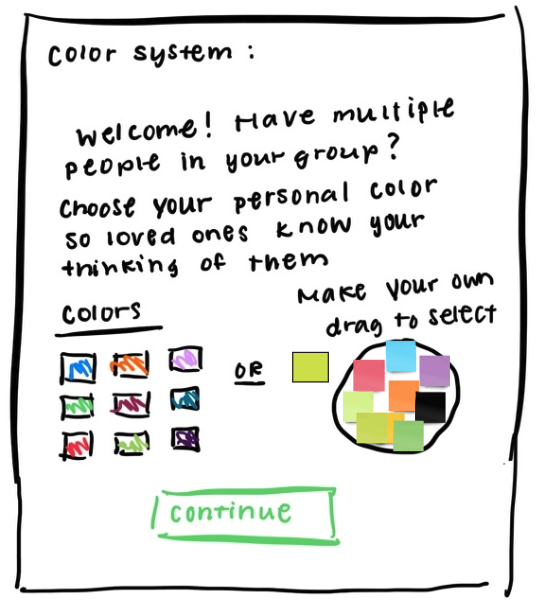 Color system:
Welcome! Have multiple
people in your group?
Choose your personal color
so loved ones know your
thinking of them
Colors
Make your own
drag to select
OR
continue